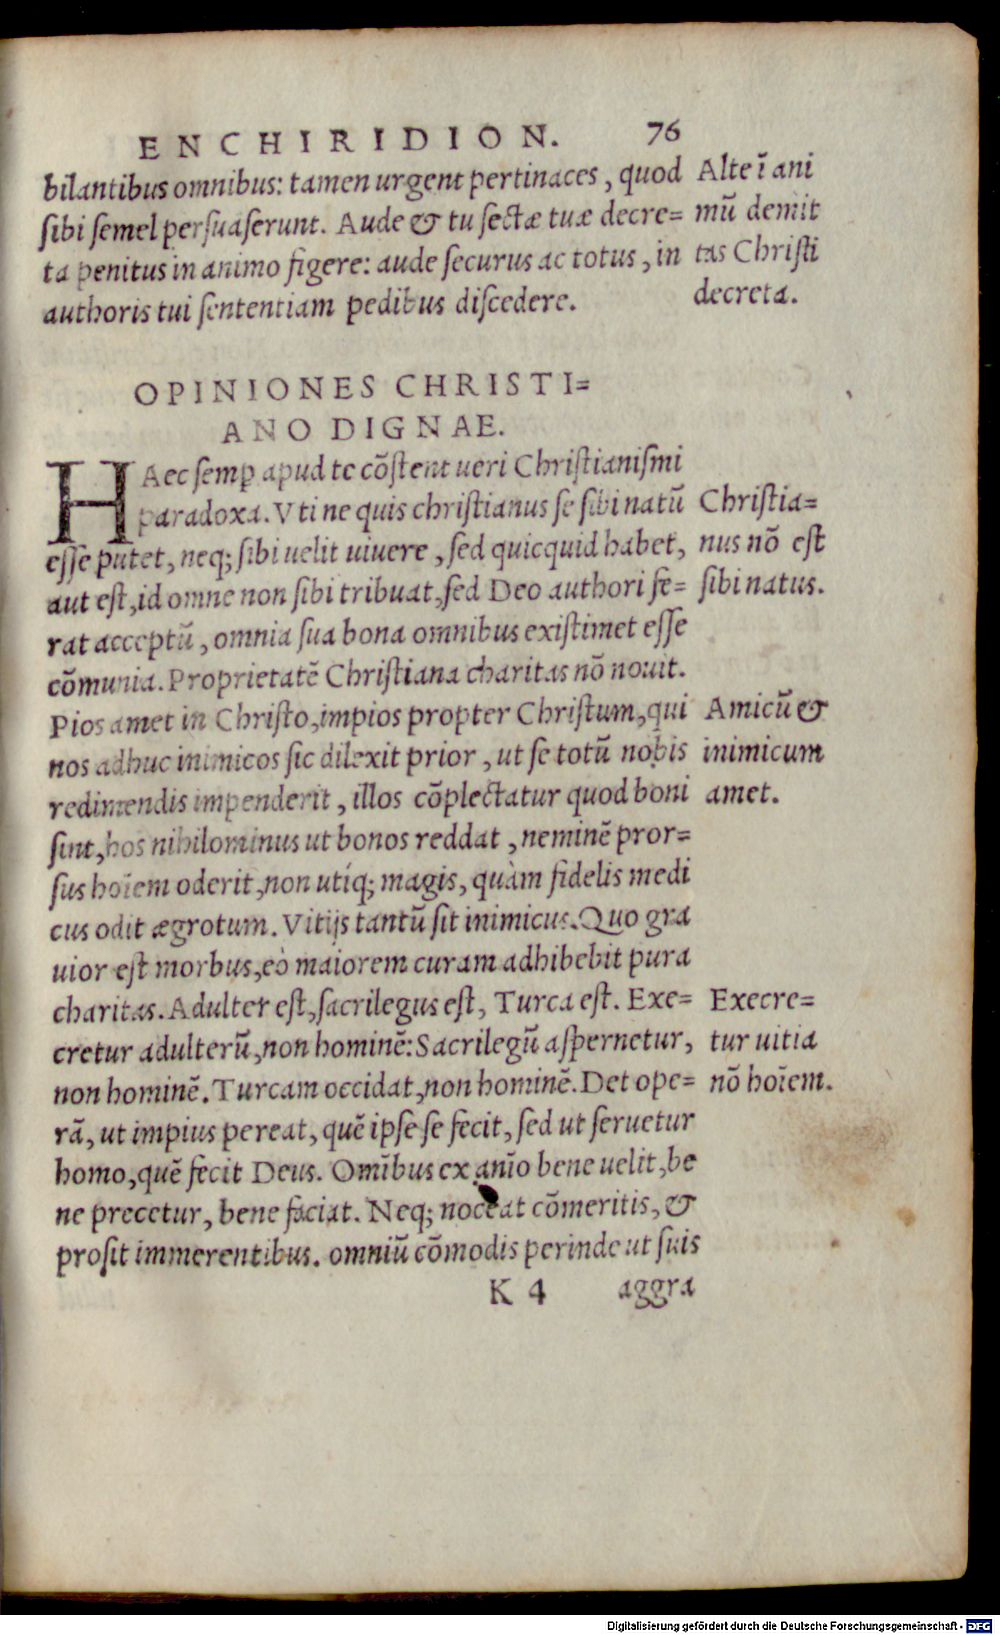 ENCHIRIDION. 76
bilantibus omnibus: tamen urgent pertinaces, quod
sibi semel persuaserunt. Aude & tu sectæ tuæ decre=
ta penitus in animo figere: aude securus ac totus, in
authoris tui sententiam pedibus discedere.
Alte ī ani
mū demit
tas Christi
decreta.
OPINIONES CHRISTI=
ANO DIGNAE.
HAec semp apud te cōstent ueri Christianismi
paradoxa. Vti ne quis christianus se sibi natū
esse putet, neq; sibi uelit uiuere, sed quicquid habet,
aut est, id omne non sibi tribuat, sed Deo authori fe=
rat acceptū, omnia sua bona omnibus existimet esse
cōmunia. Proprietatē Christiana charitas nō nouit.
Pios amet in Christo, impios propter Christum, qui
nos adhuc inimicos sic dilexit prior, ut se totū nobis
redimendis impenderit, illos cōplectatur quod boni
sint, hos nihilominus ut bonos reddat, neminē pror=
sus hoīem oderit, non utíq; magis, quàm fidelis medi
cus odit ægrotum. Vitijs tantū sit inimicus. Quo gra
uior est morbus, eò maiorem curam adhibebit pura
charitas. Adulter est, sacrilegus est, Turca est. Exe=
cretur adulterū, non hominē: Sacrilegū aspernetur,
non hominē. Turcam occidat, non hominē. Det ope=
rā, ut impius pereat, quē ipse se fecit, sed ut seruetur
homo, quē fecit Deus. Omībus ex anīo bene uelit, be
ne precetur, bene faciat. Neq; noceat cōmeritis, &
prosit immerentibus. omniū cōmodis perinde ut suis
Christia=
nus nō est
sibi natus.
Amicū &
inimicum
amet.
Execre=
tur uitia
nō hoīem.
K 4 aggra
Digitalisierung gefördert durch die Deutsche Forschungsgemeinschaft - DFG